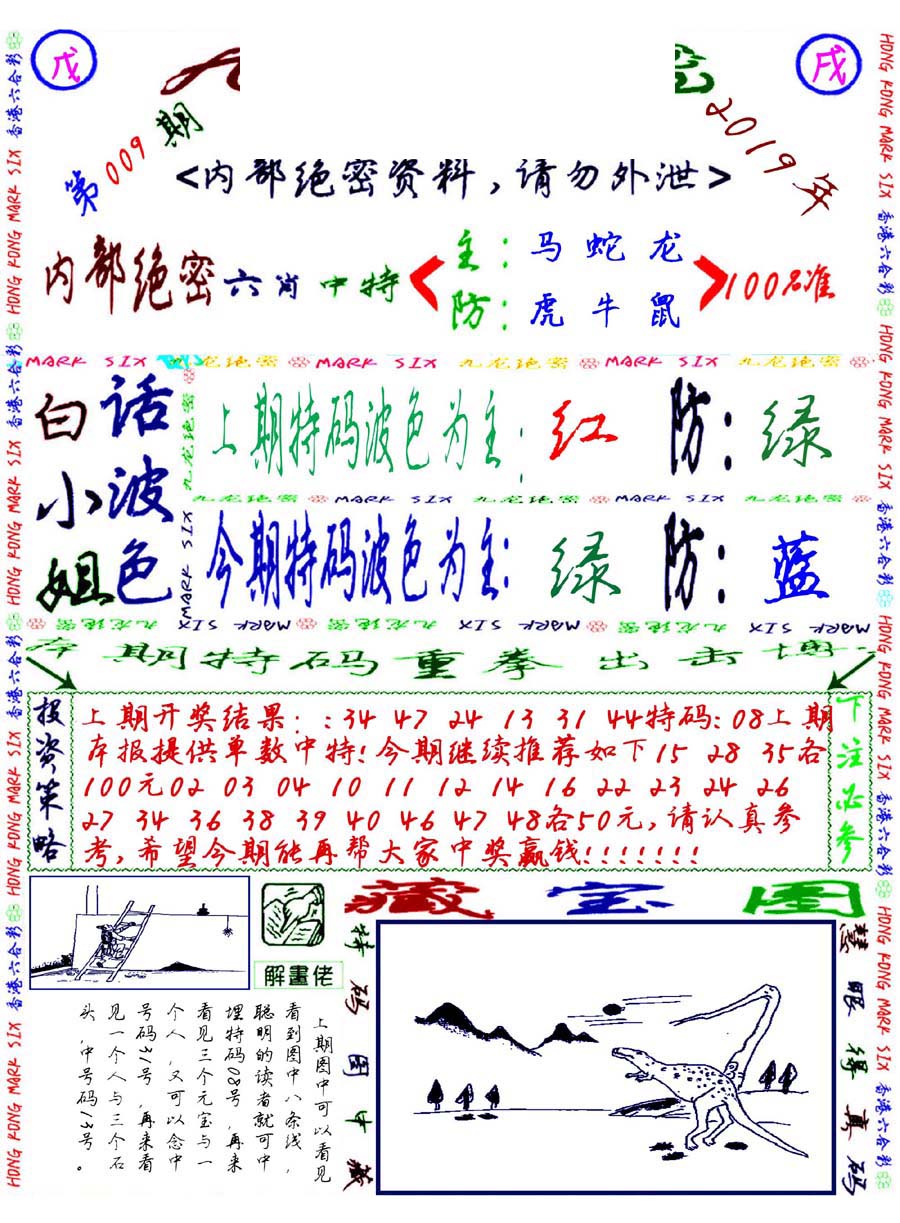 戊
戌
第009期
2019年
<内部绝密资料,请勿外泄>
内部绝密六肖中特
主:马 蛇 龙
防:虎 牛 鼠
100%准
MARK SIX 九龙绝密 MARK SIX 九龙绝密 MARK SIX 九龙绝密
白话小波姐色
上期特码波色为主:红 防:绿
九龙绝密 MARK SIX 九龙绝密 MARK SIX 九龙绝密
今期特码波色为主:绿 防:蓝
九龙绝密 MARK SIX
MARK SIX 九龙绝密 MARK SIX 九龙绝密 MARK SIX 九龙绝密
期特码重拳出击博
投资策略
上期开奖结果::34 47 24 13 31 44特码:08上期
本报提供单数中特!今期继续推荐如下15 28 35各
100元02 03 04 10 11 12 14 16 22 23 24 26
27 34 36 38 39 40 46 47 48各50元,请认真参
考,希望今期能再帮大家中奖赢钱!!!!!!!
下注必参
解畫佬
藏宝图
特码图中藏
慧眼得真码
上期图中可以看见
看到图中八条线,
聪明的读者就可中
埋特码08号,再来
看见三个元宝与一
个人,又可以念中
号码31号,再来看
见一个人与三个石
头,中号码13号。
HONG KONG MARK SIX 香港六合彩 HONG KONG MARK SIX 香港六合彩 HONG KONG MARK SIX 香港六合彩 HONG KONG MARK SIX 香港六合彩
HONG KONG MARK SIX 香港六合彩 HONG KONG MARK SIX 香港六合彩 HONG KONG MARK SIX 香港六合彩 HONG KONG MARK SIX 香港六合彩